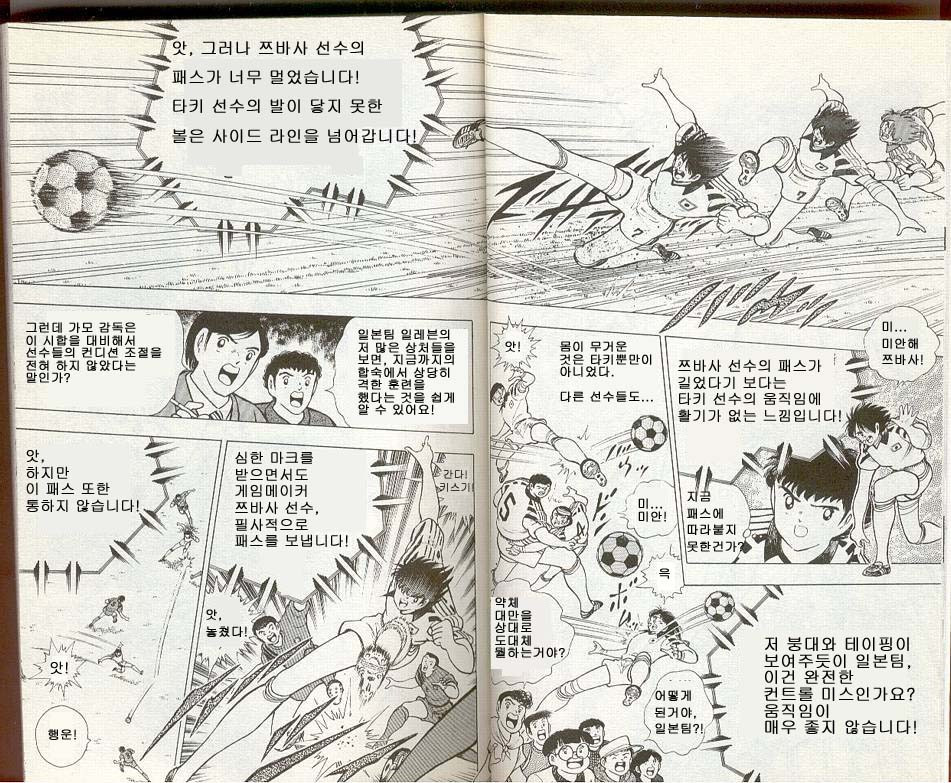 앗, 그러나 쯔바사 선수의
패스가 너무 멀었습니다!
타키 선수의 발이 닿지 못한
볼은 사이드 라인을 넘어갑니다!
미...
미안해
쯔바사!
쯔바사 선수의 패스가
길었다기 보다는
타키 선수의 움직임에
활기가 없는 느낌입니다!
지금
패스에
따라붙지
못한건가?
몸이 무거운
것은 타키뿐만이
아니었다.
다른 선수들도...
앗!
미...
미안!
윽
저 붕대와 테이핑이
보여주듯이 일본팀,
이건 완전한
컨트롤 미스인가요?
움직임이
매우 좋지 않습니다!
약체
대만을
상대로
도대체
뭘하는거야?
어떻게
된거야,
일본팀?!
일본팀 일레븐의
저 많은 상처들을
보면, 지금까지의
합숙에서 상당히
격한 훈련을
했다는 것을 쉽게
알 수 있어요!
그런데 가모 감독은
이 시합을 대비해서
선수들의 컨디션 조절을
전혀 하지 않았다는
말인가?
간다!
키스기!
심한 마크를
받으면서도
게임메이커
쯔바사 선수,
필사적으로
패스를 보냅니다!
앗,
놓쳤다!
앗,
하지만
이 패스 또한
통하지 않습니다!
앗!
행운!